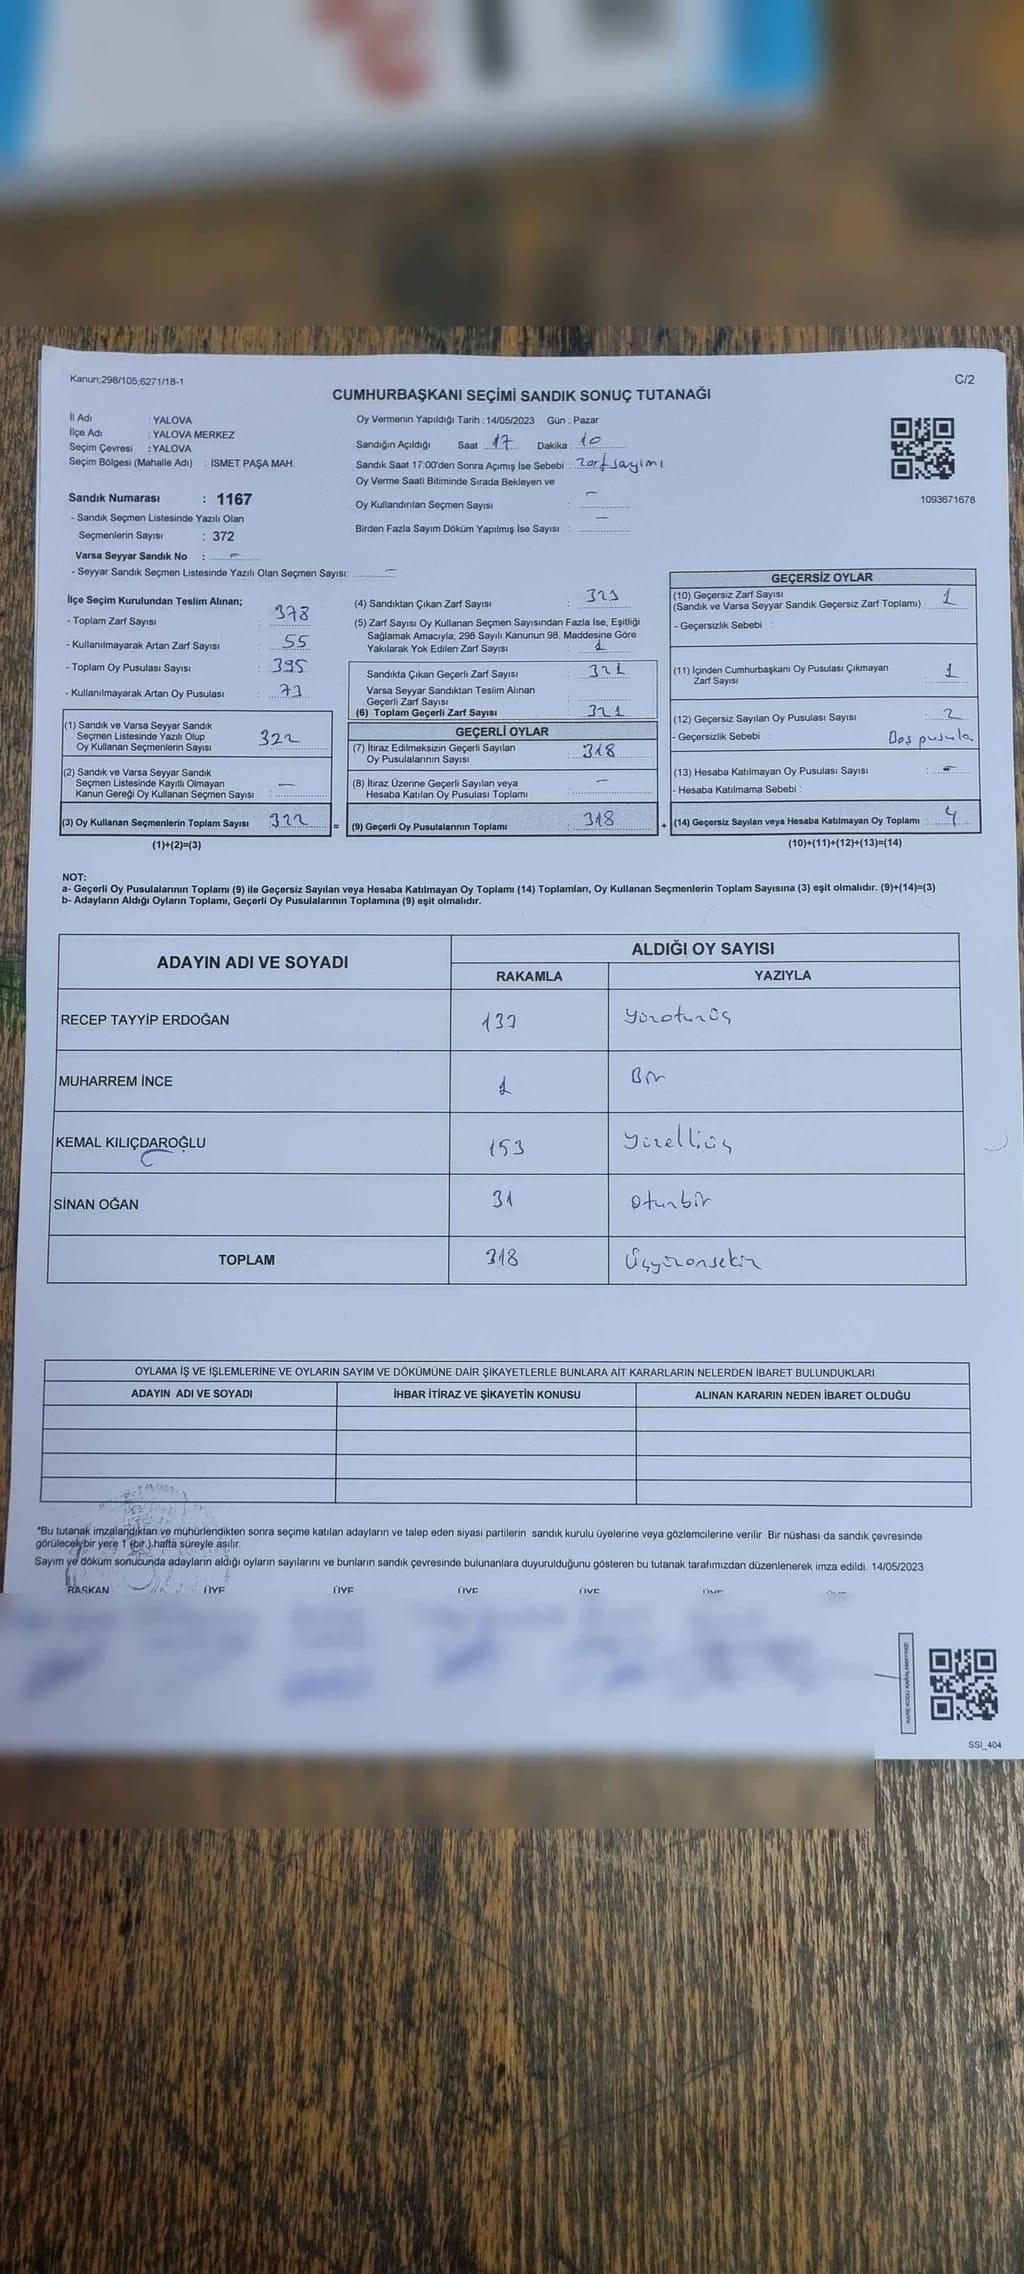 Kanun;298/105;6271/18-1
C/2
CUMHURBAŞKANI SEÇİMİ SANDIK SONUÇ TUTANAĞI
İl Adı : YALOVA
İlçe Adı : YALOVA MERKEZ
Seçim Çevresi : YALOVA
Seçim Bölgesi (Mahalle Adı) : İSMET PAŞA MAH.
Sandık Numarası : 1167
- Sandık Seçmen Listesinde Yazılı Olan
Seçmenlerin Sayısı : 372
Varsa Seyyar Sandık No : –
- Seyyar Sandık Seçmen Listesinde Yazılı Olan Seçmen Sayısı: –
Oy Vermenin Yapıldığı Tarih : 14/05/2023 Gün : Pazar
Sandığın Açıldığı Saat : 17 Dakika : 10
Sandık Saat 17:00'den Sonra Açımış İse Sebebi : zarf sayımı
Oy Verme Saati Bitiminde Sırada Bekleyen ve
Oy Kullandırılan Seçmen Sayısı : –
Birden Fazla Sayım Döküm Yapılmış İse Sayısı : –
1093671678
İlçe Seçim Kurulundan Teslim Alınan;
- Toplam Zarf Sayısı : 378
- Kullanılmayarak Artan Zarf Sayısı : 55
- Toplam Oy Pusulası Sayısı : 395
- Kullanılmayarak Artan Oy Pusulası : 73
(1) Sandık ve Varsa Seyyar Sandık
Seçmen Listesinde Yazılı Olup
Oy Kullanan Seçmenlerin Sayısı : 322
(2) Sandık ve Varsa Seyyar Sandık
Seçmen Listesinde Kayıtlı Olmayan
Kanun Gereği Oy Kullanan Seçmen Sayısı : –
(3) Oy Kullanan Seçmenlerin Toplam Sayısı : 322 =
(1)+(2)=(3)
(4) Sandıktan Çıkan Zarf Sayısı : 323
(5) Zarf Sayısı Oy Kullanan Seçmen Sayısından Fazla İse, Eşitliği
Sağlamak Amacıyla, 298 Sayılı Kanunun 98. Maddesine Göre
Yakılarak Yok Edilen Zarf Sayısı : 1
Sandıkta Çıkan Geçerli Zarf Sayısı : 321
Varsa Seyyar Sandıktan Teslim Alınan
Geçerli Zarf Sayısı :
(6) Toplam Geçerli Zarf Sayısı : 321
GEÇERLİ OYLAR
(7) İtiraz Edilmeksizin Geçerli Sayılan
Oy Pusulalarının Sayısı : 318
(8) İtiraz Üzerine Geçerli Sayılan veya
Hesaba Katılan Oy Pusulası Toplamı : –
(9) Geçerli Oy Pusulalarının Toplamı : 318 +
GEÇERSİZ OYLAR
(10) Geçersiz Zarf Sayısı
(Sandık ve Varsa Seyyar Sandık Geçersiz Zarf Toplamı) : 1
- Geçersizlik Sebebi :
(11) İçinden Cumhurbaşkanı Oy Pusulası Çıkmayan
Zarf Sayısı : 1
(12) Geçersiz Sayılan Oy Pusulası Sayısı : 2
- Geçersizlik Sebebi : Boş pusula
(13) Hesaba Katılmayan Oy Pusulası Sayısı : –
- Hesaba Katılmama Sebebi :
(14) Geçersiz Sayılan veya Hesaba Katılmayan Oy Toplamı : 4
(10)+(11)+(12)+(13)=(14)
NOT:
a- Geçerli Oy Pusulalarının Toplamı (9) ile Geçersiz Sayılan veya Hesaba Katılmayan Oy Toplamı (14) Toplamları, Oy Kullanan Seçmenlerin Toplam Sayısına (3) eşit olmalıdır. (9)+(14)=(3)
b- Adayların Aldığı Oyların Toplamı, Geçerli Oy Pusulalarının Toplamına (9) eşit olmalıdır.
ADAYIN ADI VE SOYADI
ALDIĞI OY SAYISI
RAKAMLA YAZIYLA
RECEP TAYYİP ERDOĞAN 133 Yüzotuzüç
MUHARREM İNCE 1 Bir
KEMAL KILIÇDAROĞLU 153 Yüzelliüç
SİNAN OĞAN 31 otuzbir
TOPLAM 318 Üçyüzonsekiz
OYLAMA İŞ VE İŞLEMLERİNE VE OYLARIN SAYIM VE DÖKÜMÜNE DAİR ŞİKAYETLERLE BUNLARA AİT KARARLARIN NELERDEN İBARET BULUNDUKLARI
ADAYIN ADI VE SOYADI İHBAR İTİRAZ VE ŞİKAYETİN KONUSU ALINAN KARARIN NEDEN İBARET OLDUĞU
*Bu tutanak imzalandıktan ve mühürlendikten sonra seçime katılan adayların ve talep eden siyasi partilerin sandık kurulu üyelerine veya gözlemcilerine verilir .Bir nüshası da sandık çevresinde
görülecek bir yere 1 (bir ) hafta süreyle asılır.
Sayım ve döküm sonucunda adayların aldığı oyların sayılarını ve bunların sandık çevresinde bulunanlara duyurulduğunu gösteren bu tutanak tarafımızdan düzenlenerek imza edildi. 14/05/2023
BAŞKAN ÜYE ÜYE ÜYE ÜYE ÜYE
KARE KODU KARALAMAYINIZ!
SSI_404